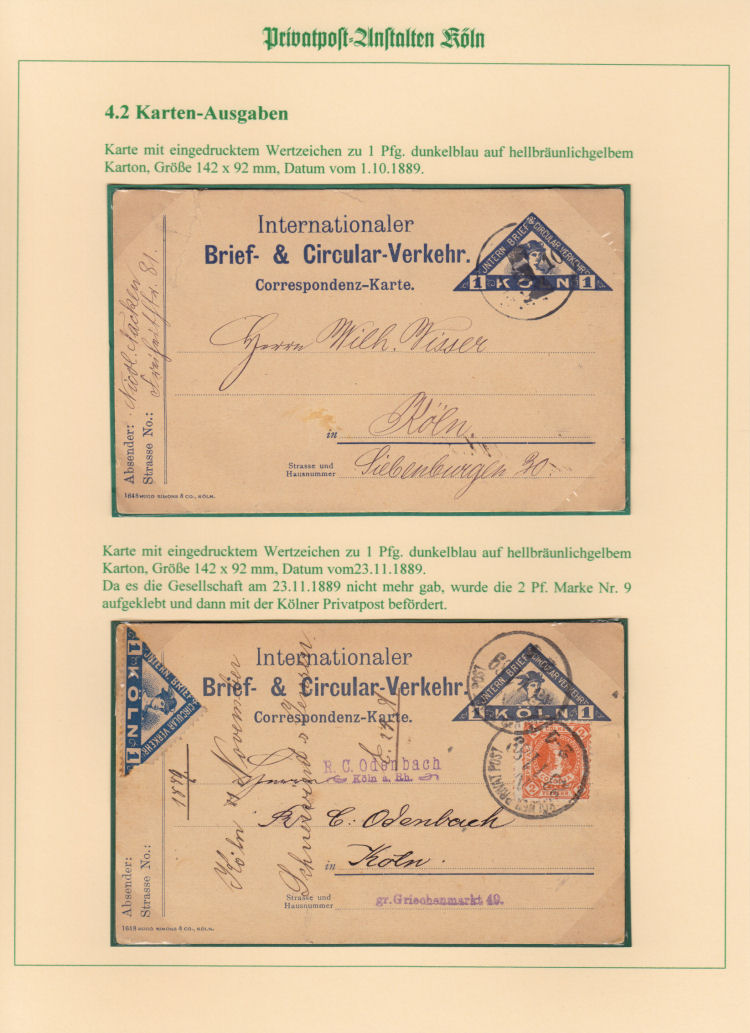 Privatpost-Anstalten Köln
4.2 Karten-Ausgaben
Karte mit eingedrucktem Wertzeichen zu 1 Pfg. dunkelblau auf hellbräunlichgelbem
Karton, Größe 142 x 92 mm, Datum vom 1.10.1889.
Internationaler
Brief- & Circular-Verkehr.
Correspondenz-Karte.
INTERN BRIEF
CIRCULAR VERKEHR
1 KÖLN 1
Absender: Nicol. Nacken
Strasse No.: 81.
Herrn Wilh. Visser
in Köln.
Strasse und
Hausnummer
Siebenburgen 20
1648 HUGO SIMONS & CO., KÖLN.
Karte mit eingedrucktem Wertzeichen zu 1 Pfg. dunkelblau auf hellbräunlichgelbem
Karton, Größe 142 x 92 mm, Datum vom23.11.1889.
Da es die Gesellschaft am 23.11.1889 nicht mehr gab, wurde die 2 Pf. Marke Nr. 9
aufgeklebt und dann mit der Kölner Privatpost befördert.
INTERN BRIEF
CIRCULAR VERKEHR
1 KÖLN 1
Internationaler
Brief- & Circular-Verkehr.
Correspondenz-Karte.
INTERN BRIEF
CIRCULAR VERKEHR
1 KÖLN 1
KÖLNER PRIVAT POST
2
Köln November
1889
R. C. Odenbach
Köln a. Rh.
Herrn
R. C. Odenbach
in Köln.
Strasse und
Hausnummer
gr. Griechenmarkt 49.
Absender:
Strasse No.:
1648 HUGO SIMONS & CO., KÖLN.